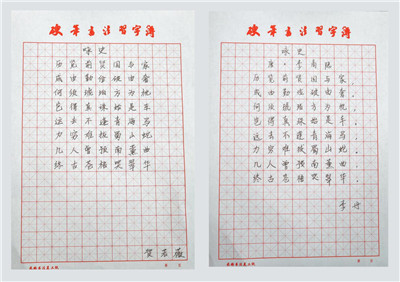 硬筆書法習字簿
咏史
历览前贤国与家
成由勤俭破由奢
何须琥珀方为枕
岂得真珠始是车
运去不逢青海马
力穷难拔蜀山蛇
几人曾预南薰曲
终古苍梧哭翠华
硬筆書法習字簿
咏史
李商隐
历览前贤国与家，
成由勤俭破由奢。
何须琥珀方为枕，
岂得真珠始是车。
运去不逢青海马，
力穷难拔蜀山蛇。
几人曾预南薰曲，
终古苍梧哭翠华。